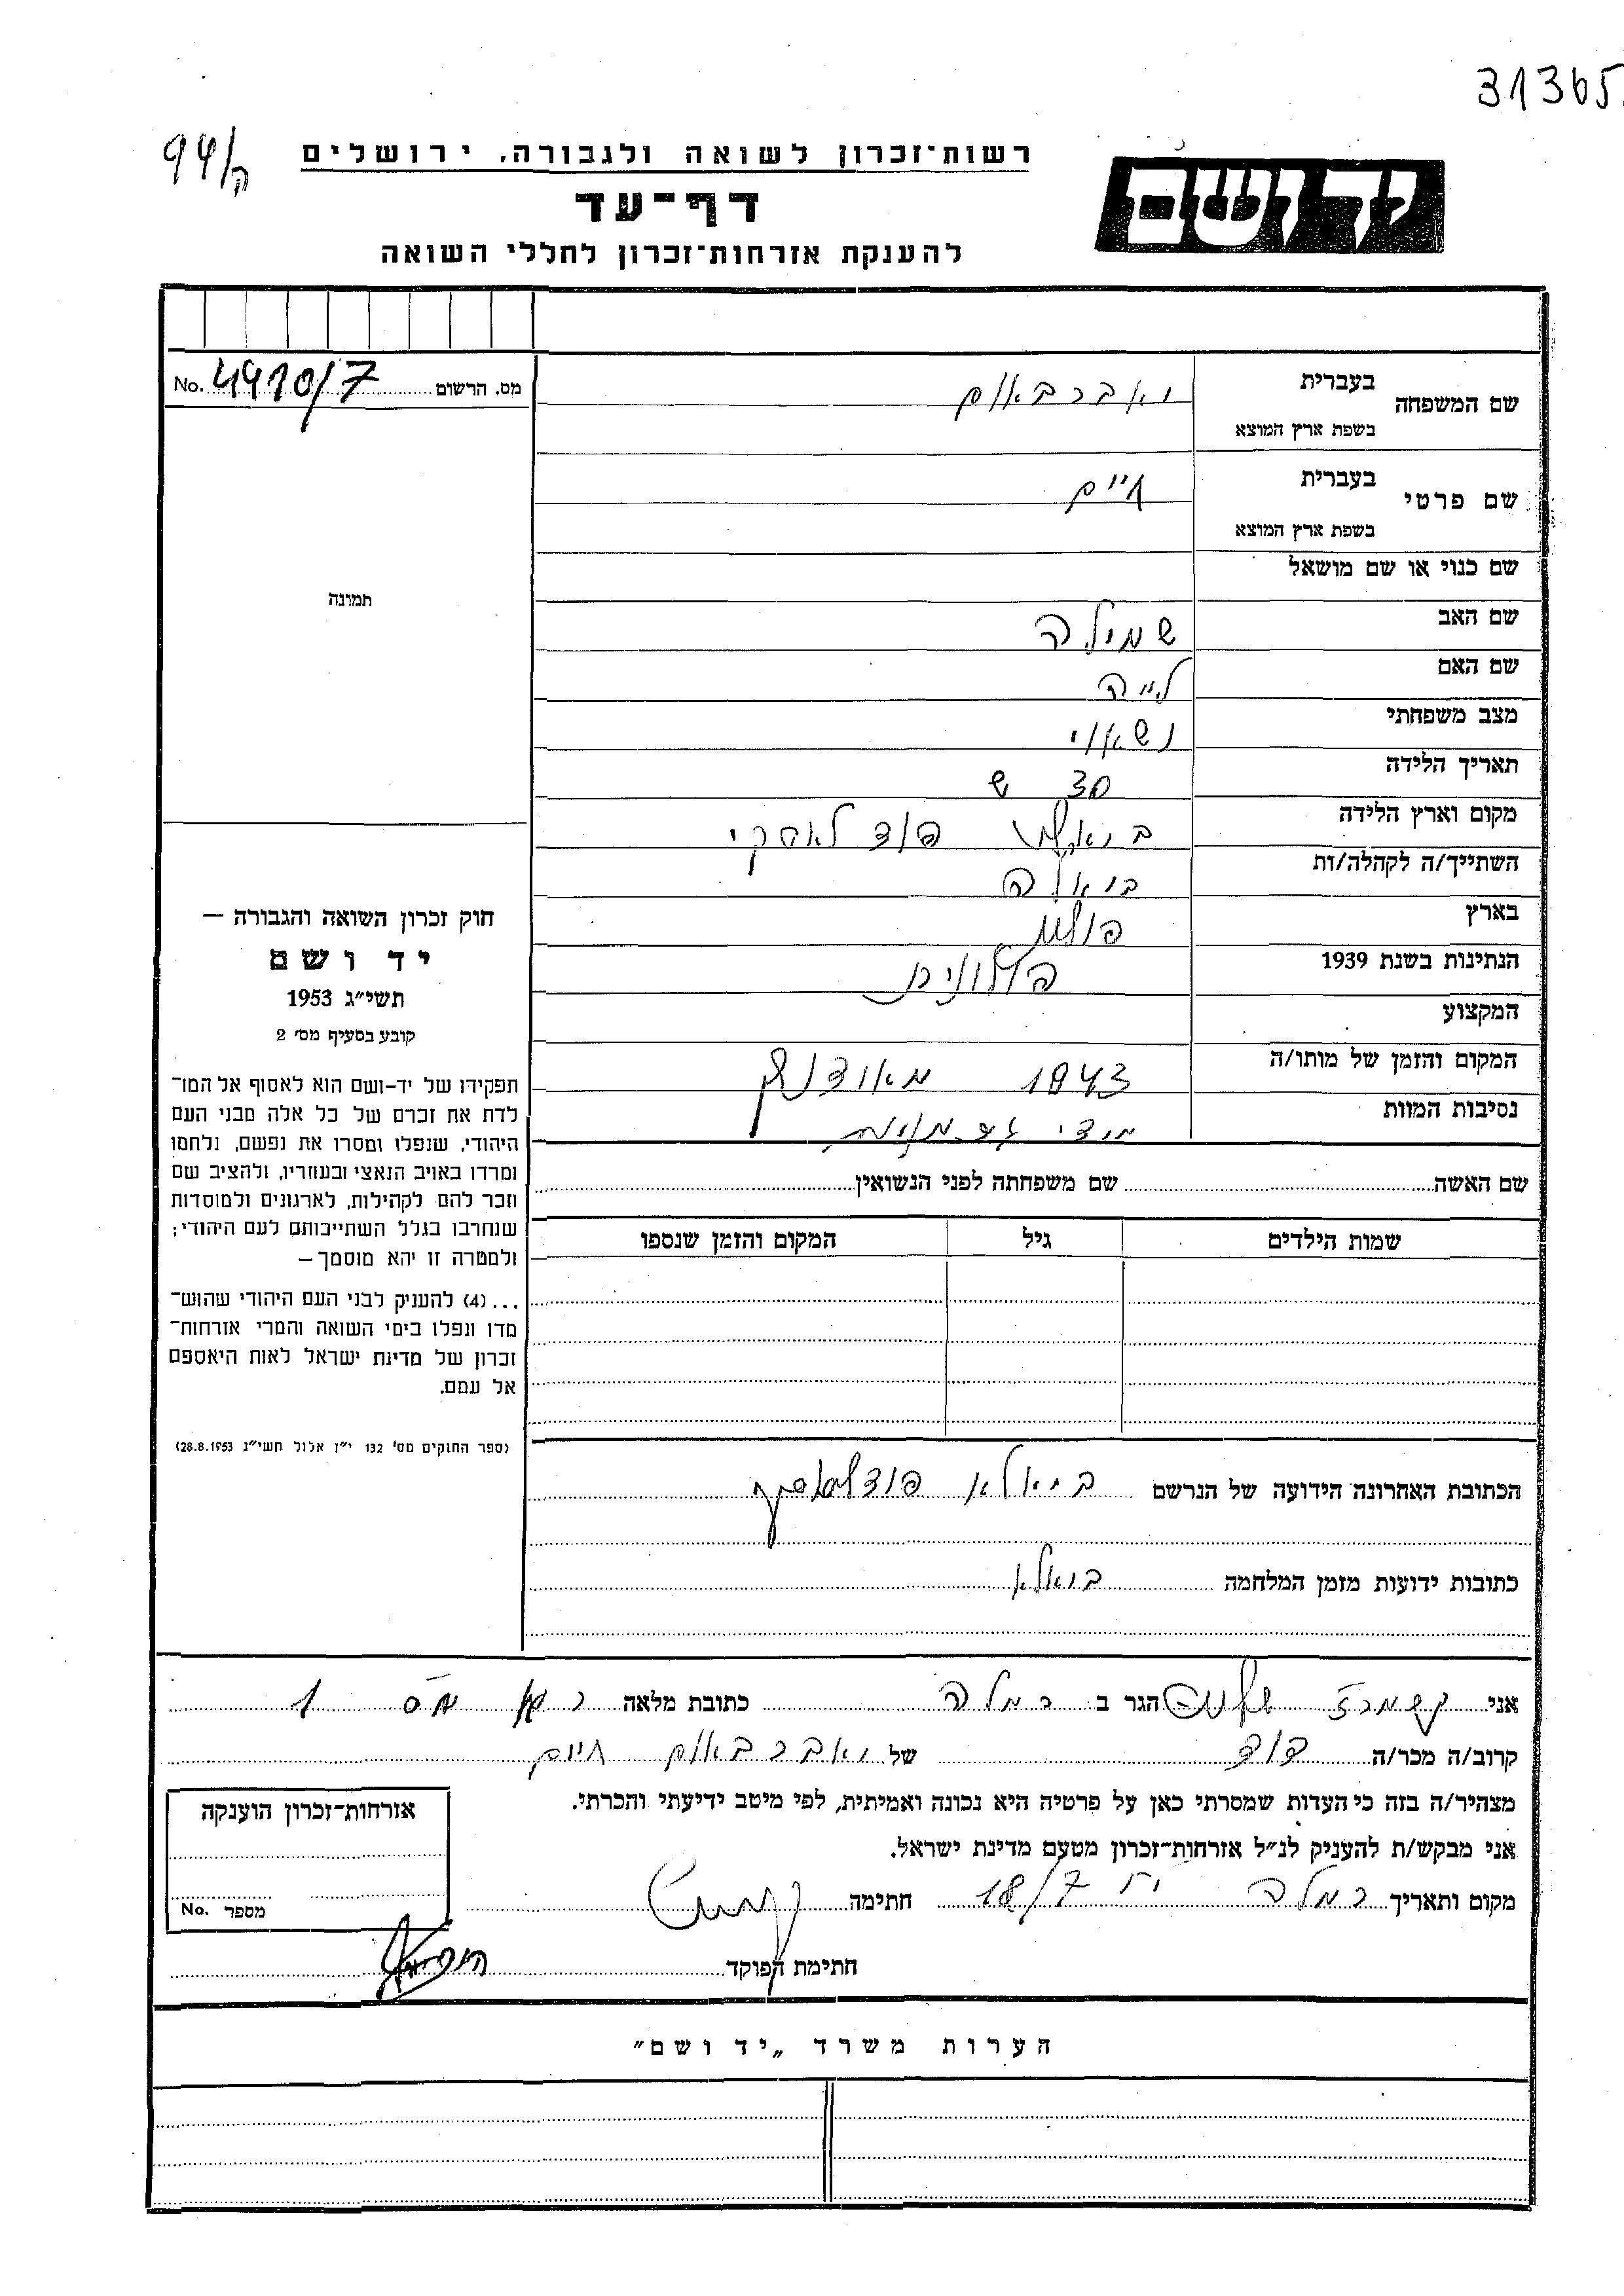 31365
94/ה
יד ושם
רשות־זכרון לשואה ולגבורה, ירושלים
דף־עד
להענקת אזרחות־זכרון לחללי השואה
מס. הרשום 4910/7 No.
שם המשפחה
בעברית ואברבאום
בשפת ארץ המוצא
שם פרטי
בעברית חיים
בשפת ארץ המוצא
שם כנוי או שם מושאל
שם האב שמילה
שם האם לייה
מצב משפחתי נשאוי
תאריך הלידה 30 ש
מקום וארץ הלידה פודלאסקי
השתייך/ה לקהלה/ות ביאלה
בארץ פולין
הנתינות בשנת 1939
המקצוע
המקום והזמן של מותו/ה 1943
נסיבות המוות
שם האשה שם משפחתה לפני הנשואין
שמות הילדים גיל המקום והזמן שנספו
הכתובת האחרונה הידועה של הנרשם ביאלא
כתובות ידועות מזמן המלחמה ביאלא
תמונה
חוק זכרון השואה והגבורה —
יד ושם
תשי״ג 1953
קובע בסעיף מס׳ 2
תפקידו של יד-ושם הוא לאסוף אל המו־
לדת את זכרם של כל אלה מבני העם
היהודי, שנפלו ומסרו את נפשם, נלחמו
ומרדו באויב הנאצי ובעוזריו, ולהציב שם
וזכר להם לקהילות, לארגונים ולמוסדות
שנחרבו בגלל השתייכותם לעם היהודי;
ולמטרה זו יהא מוסמך —
...(4) להעניק לבני העם היהודי שהוש־
מדו ונפלו בימי השואה והמרי אזרחות־
זכרון של מדינת ישראל לאות היאספם
אל עמם.
(ספר החוקים מס׳ 132 י״ז אלול תשי״ג 28.8.1953)
אני הגר ב רמלה כתובת מלאה 1
קרוב/ה מכר/ה דוד של ואברבאום חיים
מצהיר/ה בזה כי העדות שמסרתי כאן על פרטיה היא נכונה ואמיתית, לפי מיטב ידיעתי והכרתי.
אני מבקש/ת להעניק לנ״ל אזרחות־זכרון מטעם מדינת ישראל.
מקום ותאריך רמלה 18/7 חתימה
חתימת הפוקד
אזרחות־זכרון הוענקה
מספר No.
הערות משרד „יד ושם״